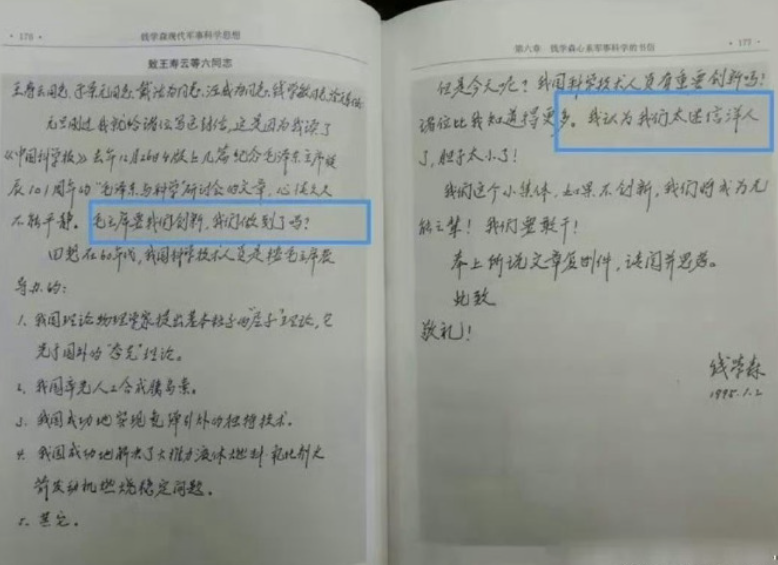 ·176·
钱学森现代军事科学思想
致王寿云等六同志
王寿云同志、于景元同志、戴汝为同志、汪成为同志、钱学敏同志、涂元季同志:
元旦刚过我就给诸位写这封信,这是因为我读了
《中国科学报》去年12月26日4版上几篇纪念毛泽东主席诞
辰101周年的“毛泽东与科学”研讨会的文章,心情久久
不能平静。毛主席要我们创新,我们做到了吗?
回想在60年代,我国科学技术人员是按毛主席教
导办的:
1、我国理论物理学家提出基本粒子的“层子”理论,它
先于国外的“夸克”理论。
2、我国率先人工合成胰岛素。
3、我国成功地实现氢弹引爆的独特技术。
4、我国成功地解决了大推力液体燃料氧化剂火
箭发动机燃烧稳定问题。
5、其它。
第六章 钱学森心系军事科学的书信
·177·
但是今天呢?我国科学技术人员有重要创新吗?
诸位比我知道得更多。我认为我们太迷信洋人
了,胆子太小了!
我们这个小集体,如果不创新,我们将成为无
能之辈!我们要敢干!
奉上所说文章复印件,请阅并思考。
此致
敬礼!
钱学森
1995.1.2